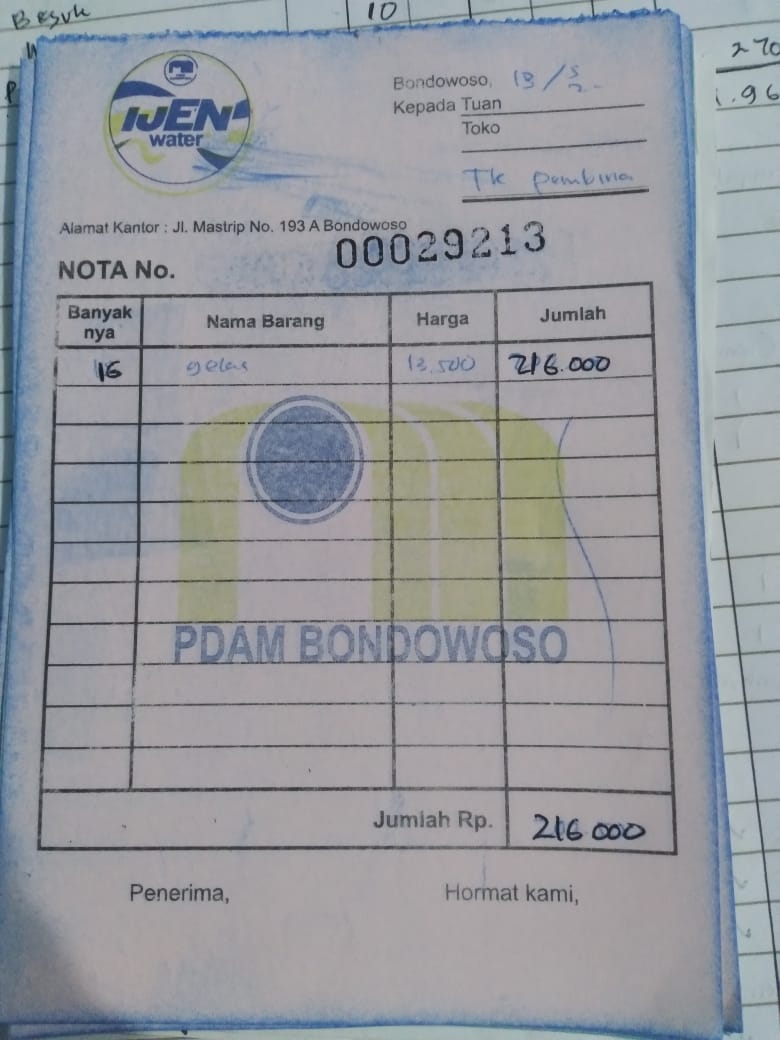 Besuk
10
270
1.96
IJEN
water
Bondowoso, 13/5
Kepada Tuan
Toko
Tk pembina
Alamat Kantor : Jl. Mastrip No. 193 A Bondowoso
NOTA No. 00029213
Banyak nya Nama Barang Harga Jumlah
16 gelas 13.500 216.000
PDAM BONDOWOSO
Jumlah Rp. 216 000
Penerima, Hormat kami,